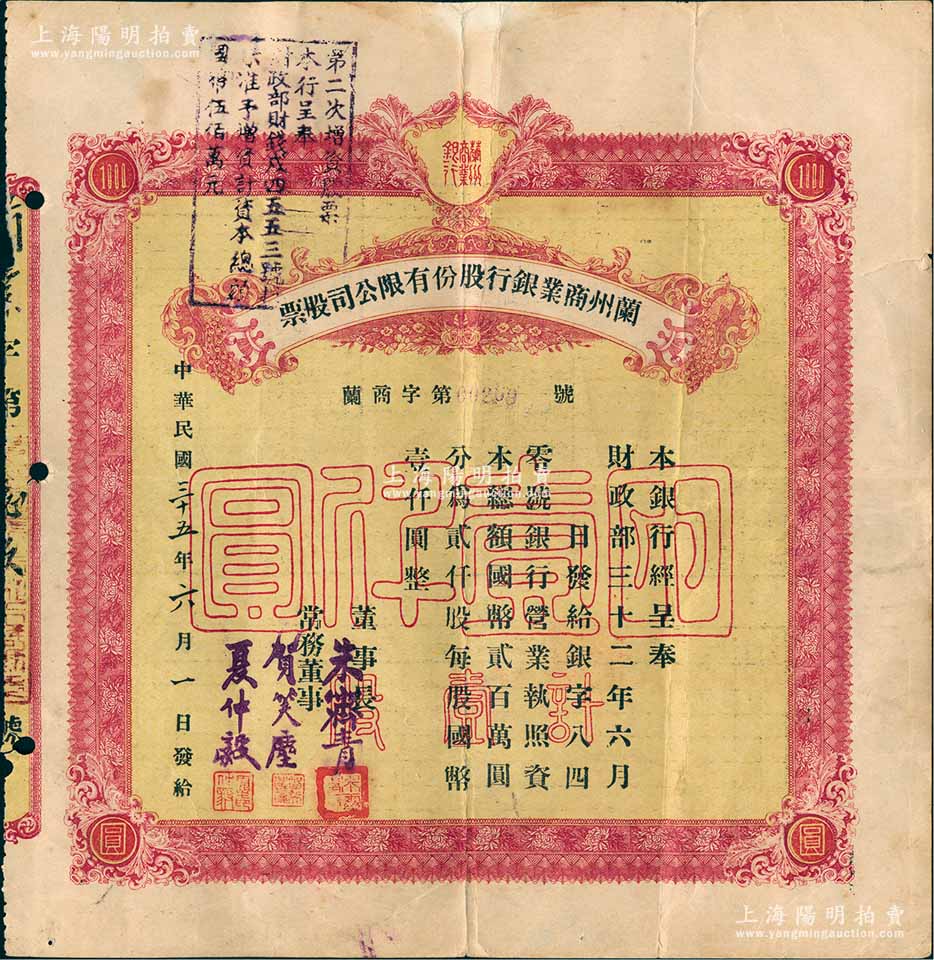 上海陽明拍賣
www.yangmingauction.com
第二次增資股票
本行呈奉
財政部財錢戌四五五三號
准予增資計資本總額
國幣伍佰萬元
蘭州商業銀行
蘭州商業銀行股份有限公司股票
蘭商字第 號
本銀行經呈奉
財政部三十二年六月
日發給銀字八四
零號銀行營業執照資
本總額國幣貳百萬圓
分為貳仟股每股國幣
壹仟圓整
國幣壹仟圓
計壹股
董事長
朱霖青
常務董事
賀笑塵
夏仲毅
中華民國三十五年六月一日發給
圓
圓
字第
號
上海陽明拍賣
www.yangmingauction.com
上海陽明拍賣
www.yangmingauction.com